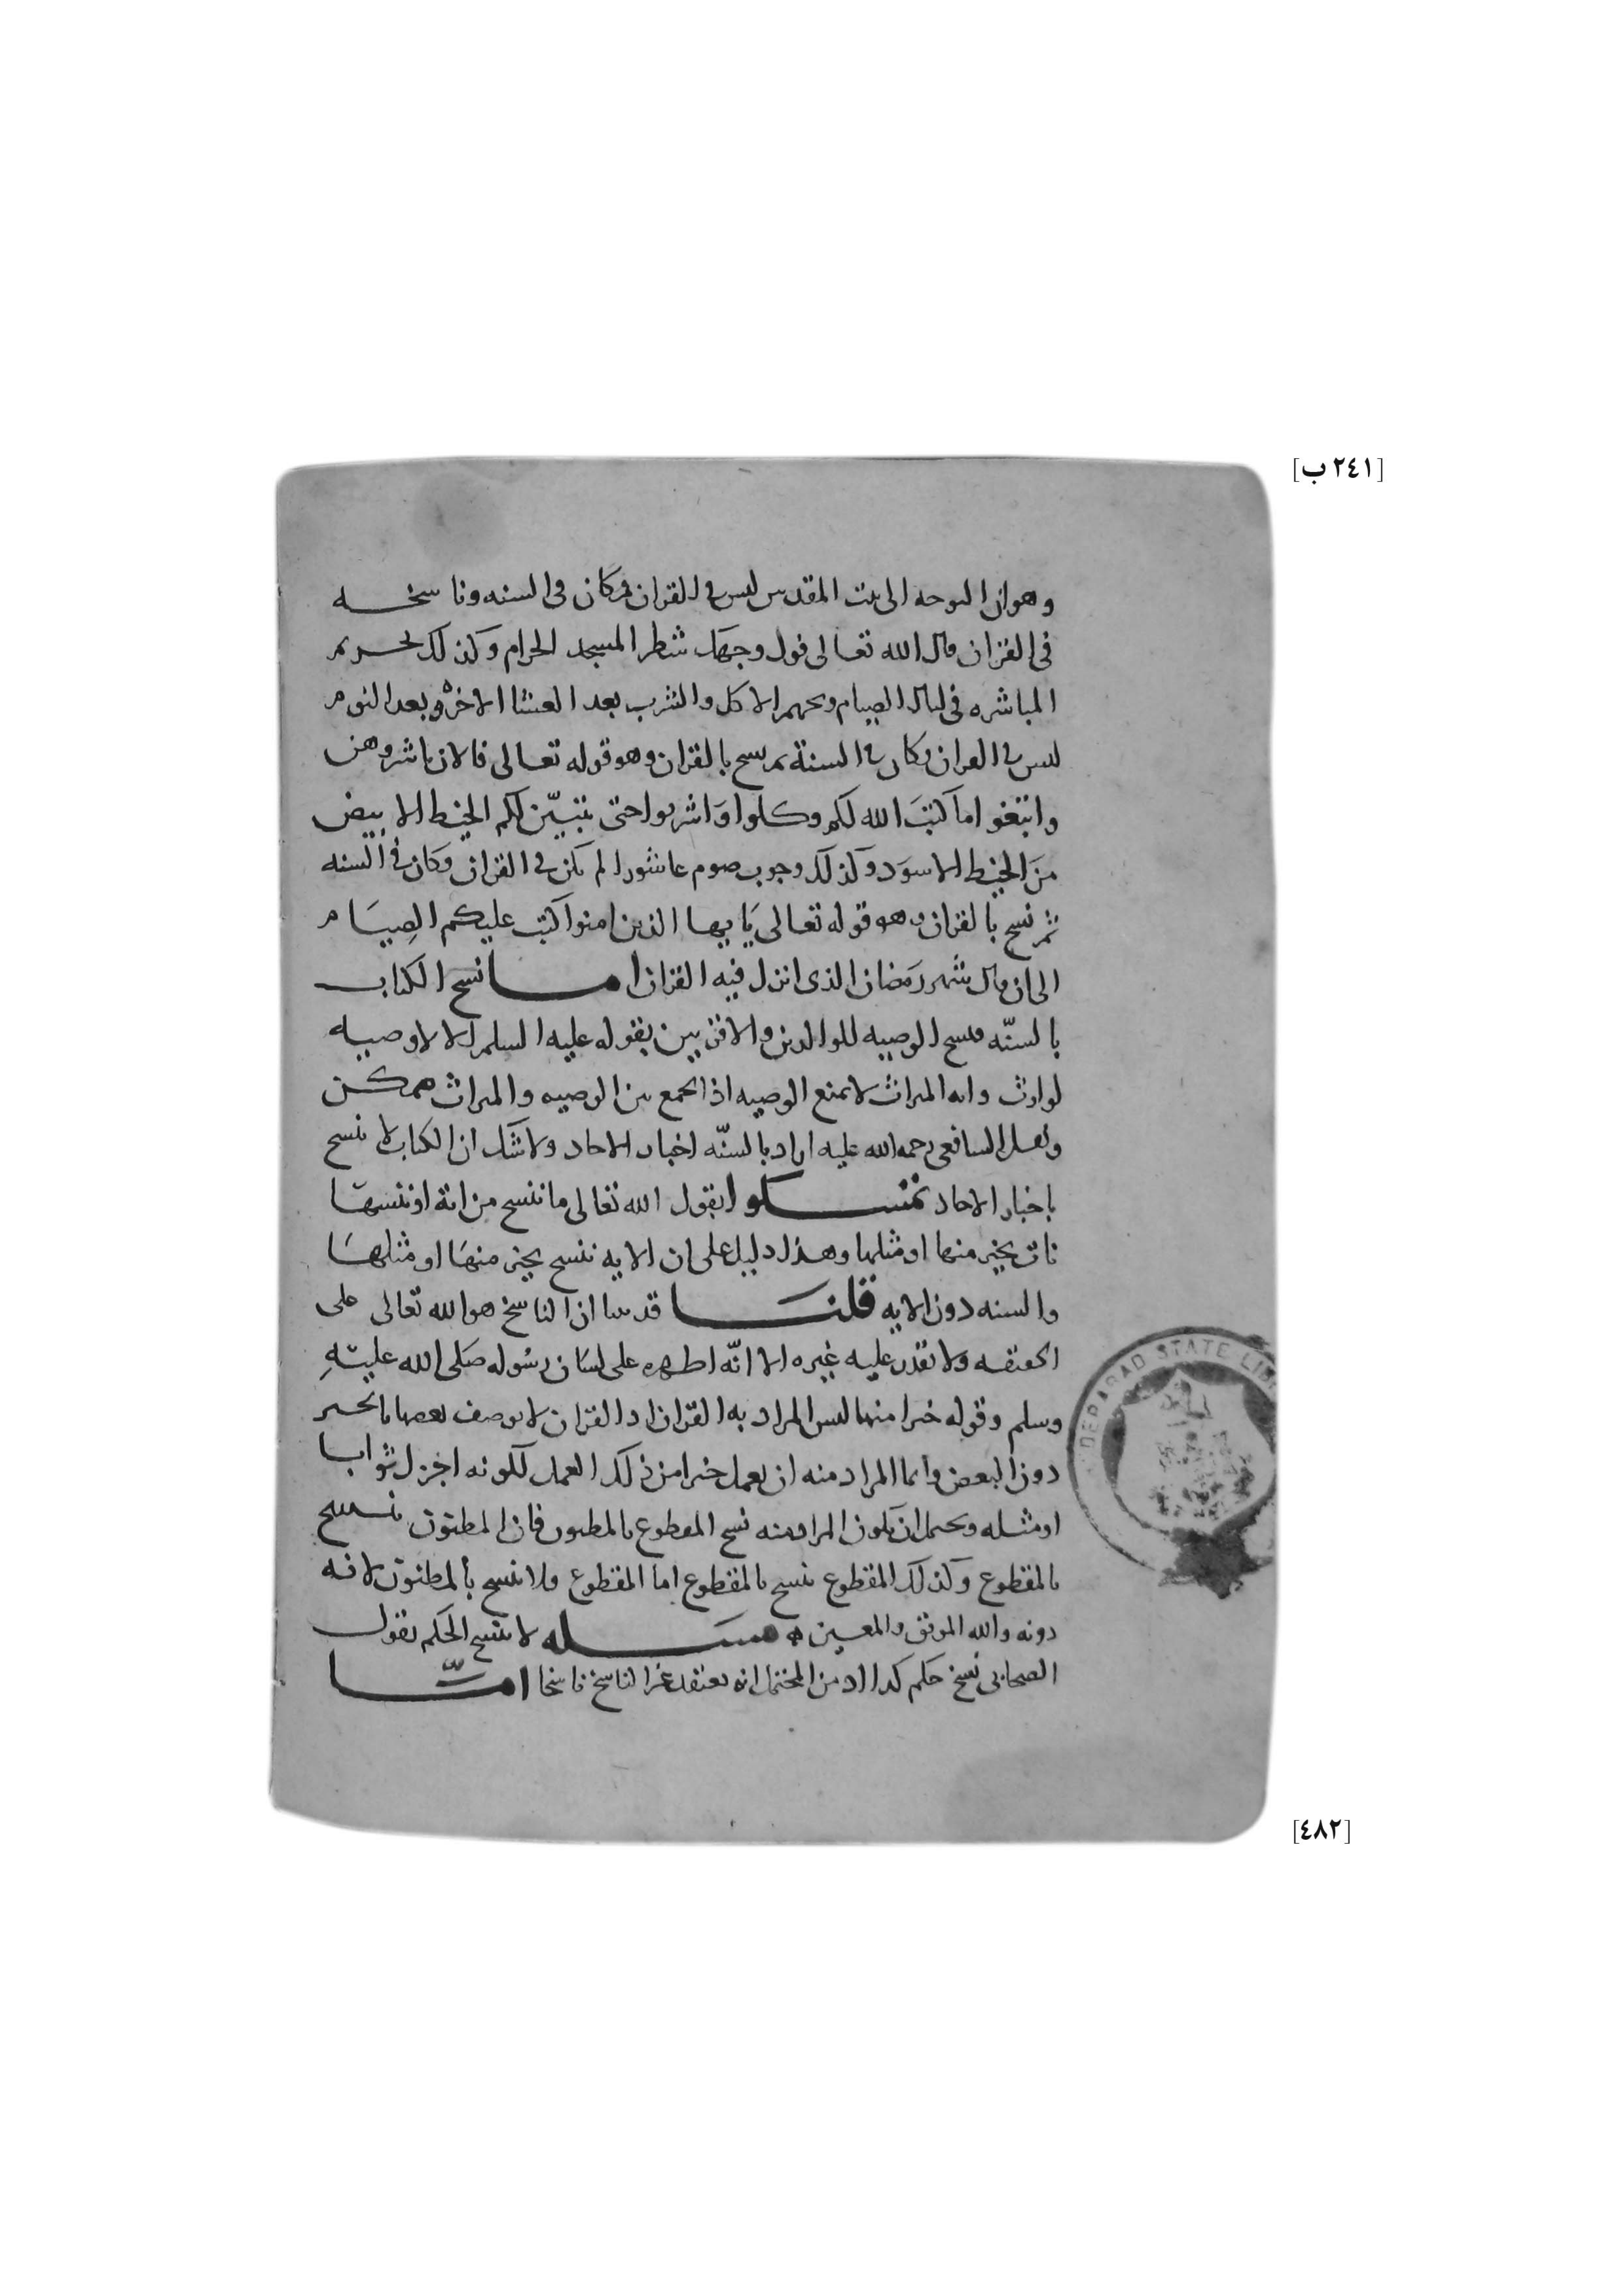 [٢٤١ ب]
وهو ان التوجه الى بيت المقدس ليس في القران وكان في السنه وناسخه
في القران قال الله تعالى فول وجهك شطر المسجد الحرام وكذلك تحريم
المباشره في ليال الصيام وتحريم الاكل والشرب بعد العشا الاخره وبعد النوم
ليس في القران وكان في السنة ثم نسخ بالقران وهو قوله تعالى فالان باشروهن
وابتغوا ما كتبَ الله لكم وكلوا وَاشربوا حتى يتبيّن لكم الخيط الابيض
منَ الخيط الاسوَد وكذلك وجوب صوم عاشورا لم يكن في القران وكان في السنه
ثم نسخ بالقران وهو قوله تعالى يَايها الذين امنوا كتب عليكم الصِيَام
الى ان قال شَهر رمَضان الذى انزل فيه القران امـا نسخ الكتاب
بالسنّه فنسخ الوصيه للوالدين والاقربين بقوله عليه السلم الا لا وصيه
لوارث وايه الميراث لا تمنع الوصيه اذ الجمع بين الوصيه والميراث ممكن
ولعل الشافعى رحمه الله عليه اراد بالسنّه اخبار الاحاد ولا شَك ان الكتاب لا ينسخ
باخبار الاحاد تمسكوا بقول الله تعالى ما ننسخ من اية او ننسها
نات بخير منها او مثلها وهذا دليل على ان الايه تنسخ بخير منهَا او مثلهَا
والسنه دون الايه قلنـا قد بينا ان الناسخ هو الله تعالى على
الحقيقه ولا يقدر عليه غيره الا انّه اظهره على لسَان رسُوله صَلى الله عليهِ
وسلم وقوله خيرا منها ليس المراد به القران اذ القران لا يوصف بعضها بالخير
دون البعض وانما المراد منه ان يعمل خيرا من ذلك العمل لكونه اجزل ثوابا
او مثله ويحتمل ان يكون المراد منه نسخ المقطوع بالمظنون فان المظنون ينسخ
بالمقطوع وكذلك المقطوع ينسخ بالمقطوع اما المقطوع فلا ينسخ بالمظنون لانه
دونه والله الموفق والمعين ه مسَله لا ينسخ الحكم بقول
الصحابى نسخ حكم كذا اذ من المحتمل انه يعتقد غير الناسخ ناسخا امّـا
DERABAD STATE LIB
[٤٨٢]